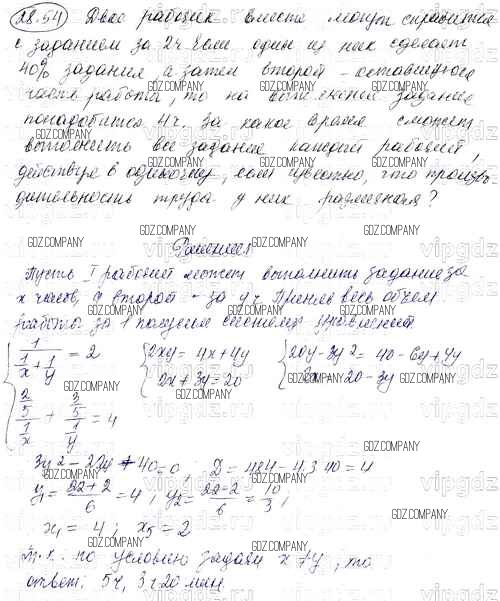 28.54 Двое рабочих вместе могут справиться
с заданием за 2 ч. Если один из них сделает
40% задания, а затем второй - оставшуюся
часть работы, то на выполнение задания
понадобится 4 ч. За какое время сможет
выполнить все задание каждый рабочий,
действуя в одиночку, если известно, что произво
дительность труда у них различная?
GDZ.COMPANY
vipgdz
Решение
Пусть I рабочий может выполнить задание за
x часов, а второй - за y ч. Приняв весь объем
работы за 1 получим систему уравнений
{ 1/(1/x + 1/y) = 2 { 2xy = 4x + 4y { 20y - 3y² = 40 - 6y + 4y
2/5 / 1/x + 3/5 / 1/y = 4 2x + 3y = 20 2x = 20 - 3y
3y² - 22y + 40 = 0; D = 484 - 4·3·40 = 4
y₁ = (22+2)/6 = 4; y₂ = (22-2)/6 = 10/3;
x₁ = 4; x₂ =
Т.к. по условию задачи x ≠ y, то
ответ: 5 ч, 3 ч 20 мин